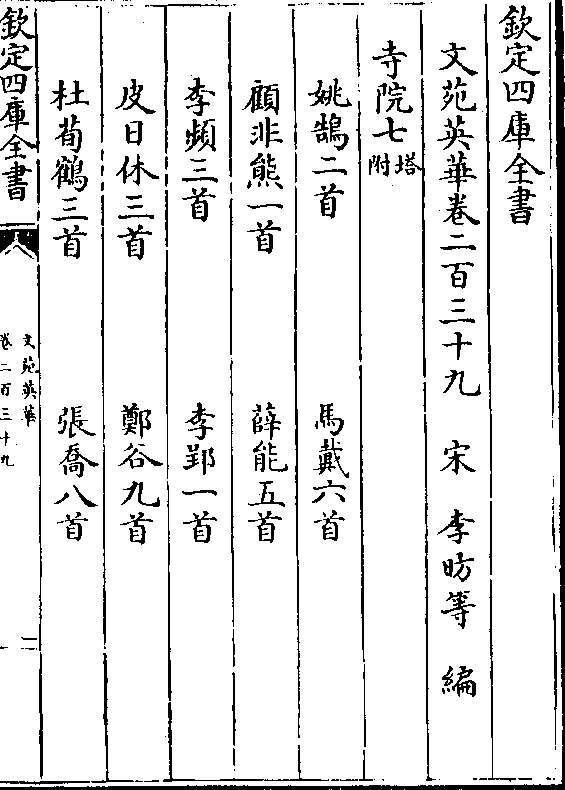 欽定四庫全書
文苑英華卷二百三十九　宋　李昉等　編
寺院七塔附
姚鵠二首　馬戴六首
顧非熊一首　薛能五首
李頻三首　李郢一首
皮日休三首　鄭谷九首
杜荀鶴三首　張喬八首
欽定四庫全書
文苑英華
卷二百三十九